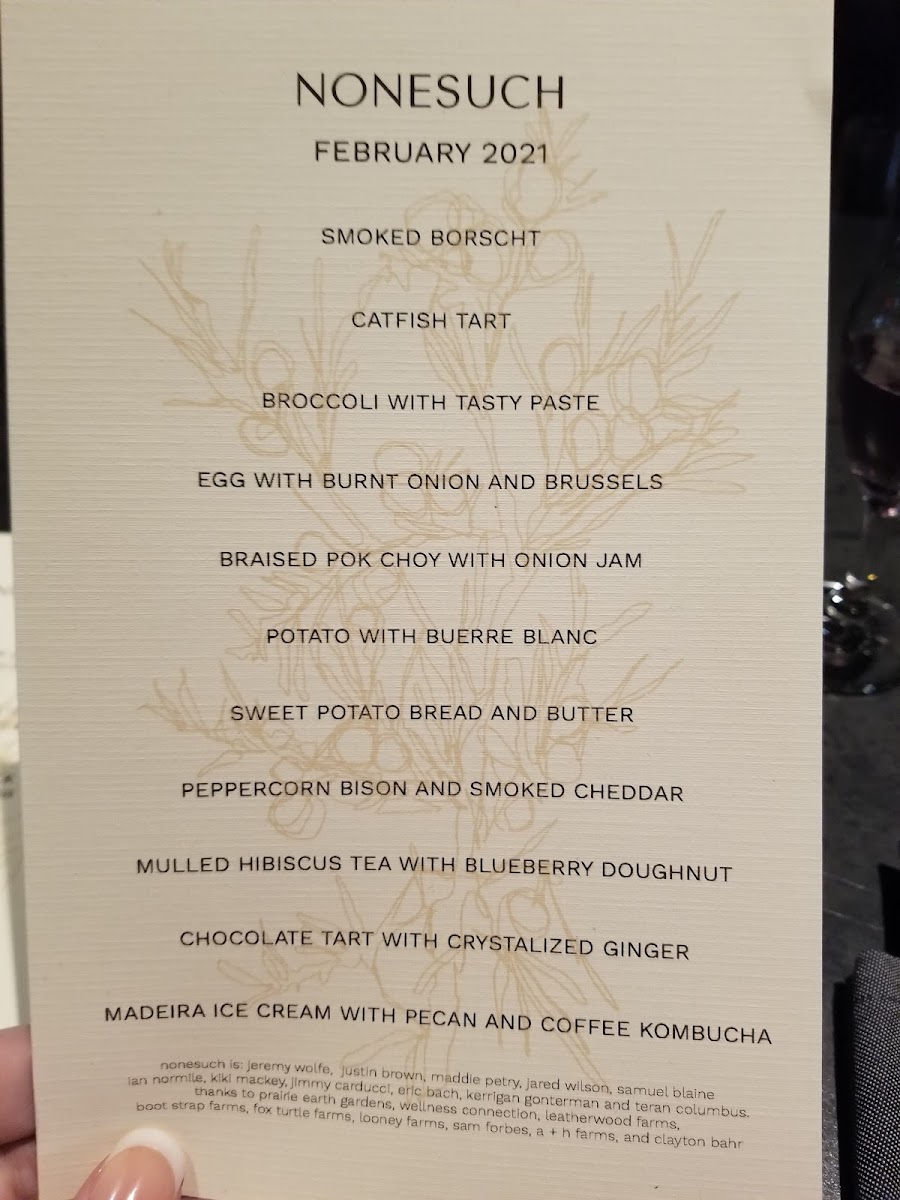 NONESUCH
FEBRUARY 2021
SMOKED BORSCHT
CATFISH TART
BROCCOLI WITH TASTY PASTE
EGG WITH BURNT ONION AND BRUSSELS
BRAISED POK CHOY WITH ONION JAM
POTATO WITH BUERRE BLANC
SWEET POTATO BREAD AND BUTTER
PEPPERCORN BISON AND SMOKED CHEDDAR
MULLED HIBISCUS TEA WITH BLUEBERRY DOUGHNUT
CHOCOLATE TART WITH CRYSTALIZED GINGER
MADEIRA ICE CREAM WITH PECAN AND COFFEE KOMBUCHA
nonesuch is: jeremy wolfe, justin brown, maddie petry, jared wilson, samuel blaine
ian normile, kiki mackey, jimmy carducci, eric bach, kerrigan gonterman and teran columbus.
thanks to prairie earth gardens, wellness connection, leatherwood farms,
boot strap farms, fox turtle farms, looney farms, sam forbes, a + h farms, and clayton bahr